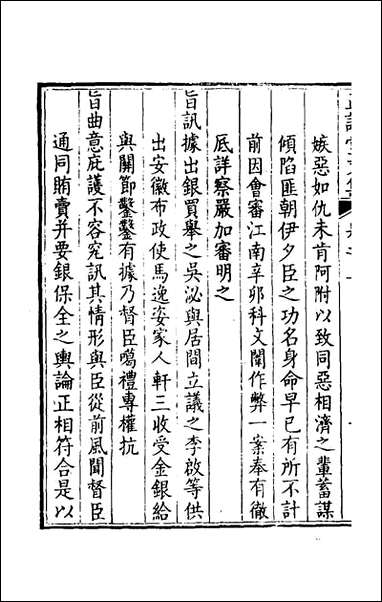 嫉惡如仇未肯阿附以致同惡相濟之輩蓄謀
傾陷匪朝伊夕臣之功名身命早已有所不計
前因會審江南辛卯科文闈作弊一案奉有徹
底詳察嚴加審明之
旨訊據出銀買舉之吳泌與居間立議之李啟等供
出安徽布政使馬逸姿家人軒三收受金銀給
與關節鑿鑿有據乃督臣噶禮專權抗
旨曲意庇護不容究訊其情形與臣從前風聞督臣
通同賄賣并要銀保全之輿論正相符合是以